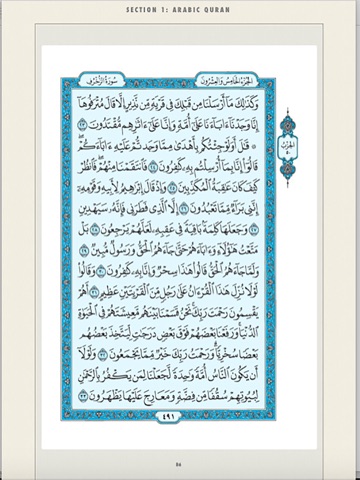 SECTION 1: ARABIC QURAN
الجزء الخامس والعشرون
سورة الزخرف
وَكَذَٰلِكَ مَآ أَرْسَلْنَا مِن قَبْلِكَ فِى قَرْيَةٍ مِّن نَّذِيرٍ إِلَّا قَالَ مُتْرَفُوهَآ
إِنَّا وَجَدْنَآ ءَابَآءَنَا عَلَىٰٓ أُمَّةٍ وَإِنَّا عَلَىٰٓ ءَاثَٰرِهِم مُّقْتَدُونَ ٢٣
۞ قَٰلَ أَوَلَوْ جِئْتُكُم بِأَهْدَىٰ مِمَّا وَجَدتُّمْ عَلَيْهِ ءَابَآءَكُمْ ۖ
قَالُوٓا۟ إِنَّا بِمَآ أُرْسِلْتُم بِهِۦ كَٰفِرُونَ ٢٤ فَٱنتَقَمْنَا مِنْهُمْ ۖ فَٱنظُرْ
كَيْفَ كَانَ عَٰقِبَةُ ٱلْمُكَذِّبِينَ ٢٥ وَإِذْ قَالَ إِبْرَٰهِيمُ لِأَبِيهِ وَقَوْمِهِۦٓ
إِنَّنِى بَرَآءٌ مِّمَّا تَعْبُدُونَ ٢٦ إِلَّا ٱلَّذِى فَطَرَنِى فَإِنَّهُۥ سَيَهْدِينِ
٢٧ وَجَعَلَهَا كَلِمَةًۢ بَاقِيَةً فِى عَقِبِهِۦ لَعَلَّهُمْ يَرْجِعُونَ ٢٨ بَلْ
مَتَّعْتُ هَٰٓؤُلَآءِ وَءَابَآءَهُمْ حَتَّىٰ جَآءَهُمُ ٱلْحَقُّ وَرَسُولٌ مُّبِينٌ ٢٩
وَلَمَّا جَآءَهُمُ ٱلْحَقُّ قَالُوا۟ هَٰذَا سِحْرٌ وَإِنَّا بِهِۦ كَٰفِرُونَ ٣٠ وَقَالُوا۟
لَوْلَا نُزِّلَ هَٰذَا ٱلْقُرْءَانُ عَلَىٰ رَجُلٍ مِّنَ ٱلْقَرْيَتَيْنِ عَظِيمٍ ٣١ أَهُمْ
يَقْسِمُونَ رَحْمَتَ رَبِّكَ ۚ نَحْنُ قَسَمْنَا بَيْنَهُم مَّعِيشَتَهُمْ فِى ٱلْحَيَوٰةِ
ٱلدُّنْيَا ۚ وَرَفَعْنَا بَعْضَهُمْ فَوْقَ بَعْضٍ دَرَجَٰتٍ لِّيَتَّخِذَ بَعْضُهُم
بَعْضًا سُخْرِيًّا ۗ وَرَحْمَتُ رَبِّكَ خَيْرٌ مِّمَّا يَجْمَعُونَ ٣٢ وَلَوْلَآ
أَن يَكُونَ ٱلنَّاسُ أُمَّةً وَٰحِدَةً لَّجَعَلْنَا لِمَن يَكْفُرُ بِٱلرَّحْمَٰنِ
لِبُيُوتِهِمْ سُقُفًا مِّن فِضَّةٍ وَمَعَارِجَ عَلَيْهَا يَظْهَرُونَ ٣٣
٤٩١
86